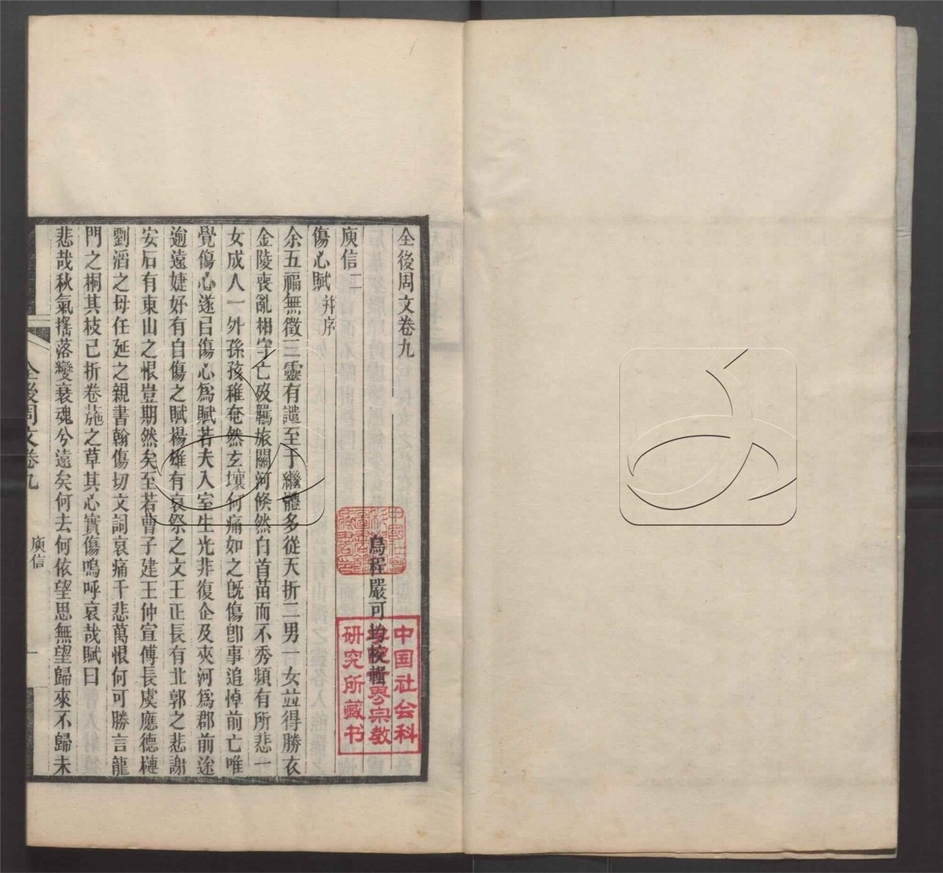 全後周文卷九
烏程嚴可均校輯
庾信二
傷心賦 并序
余五福無徵三靈有譴至于繼體多從夭折二男一女竝得勝衣
金陵喪亂相守亡歿羈旅關河倐然白首苗而不秀頻有所悲一
女成人一外孫孩稚奄然玄壤何痛如之旣傷卽事追悼前亡唯
覺傷心遂㠯傷心爲賦若夫入室生光非復企及夾河爲郡前途
逾遠婕妤有自傷之賦揚雄有哀祭之文王正長有北郭之悲謝
安石有東山之恨豈期然矣至若曹子建王仲宣傅長虞應德槤
劉滔之母任延之親書翰傷切文詞哀痛千悲萬恨何可勝言龍
門之桐其枝已折卷葹之草其心實傷嗚呼哀哉賦曰
悲哉秋氣搖落變衰魂兮遠矣何去何依望思無望歸來不歸未
全後周文卷九
庾信
一
中国社会科
学院世界宗教
研究所藏书